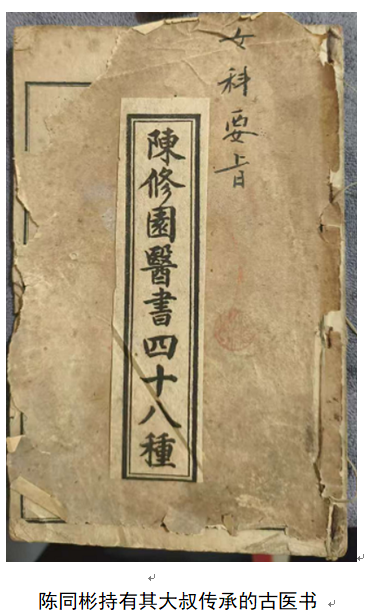 女科要旨
陳修園醫書四十八種
陈同彬持有其大叔传承的古医书